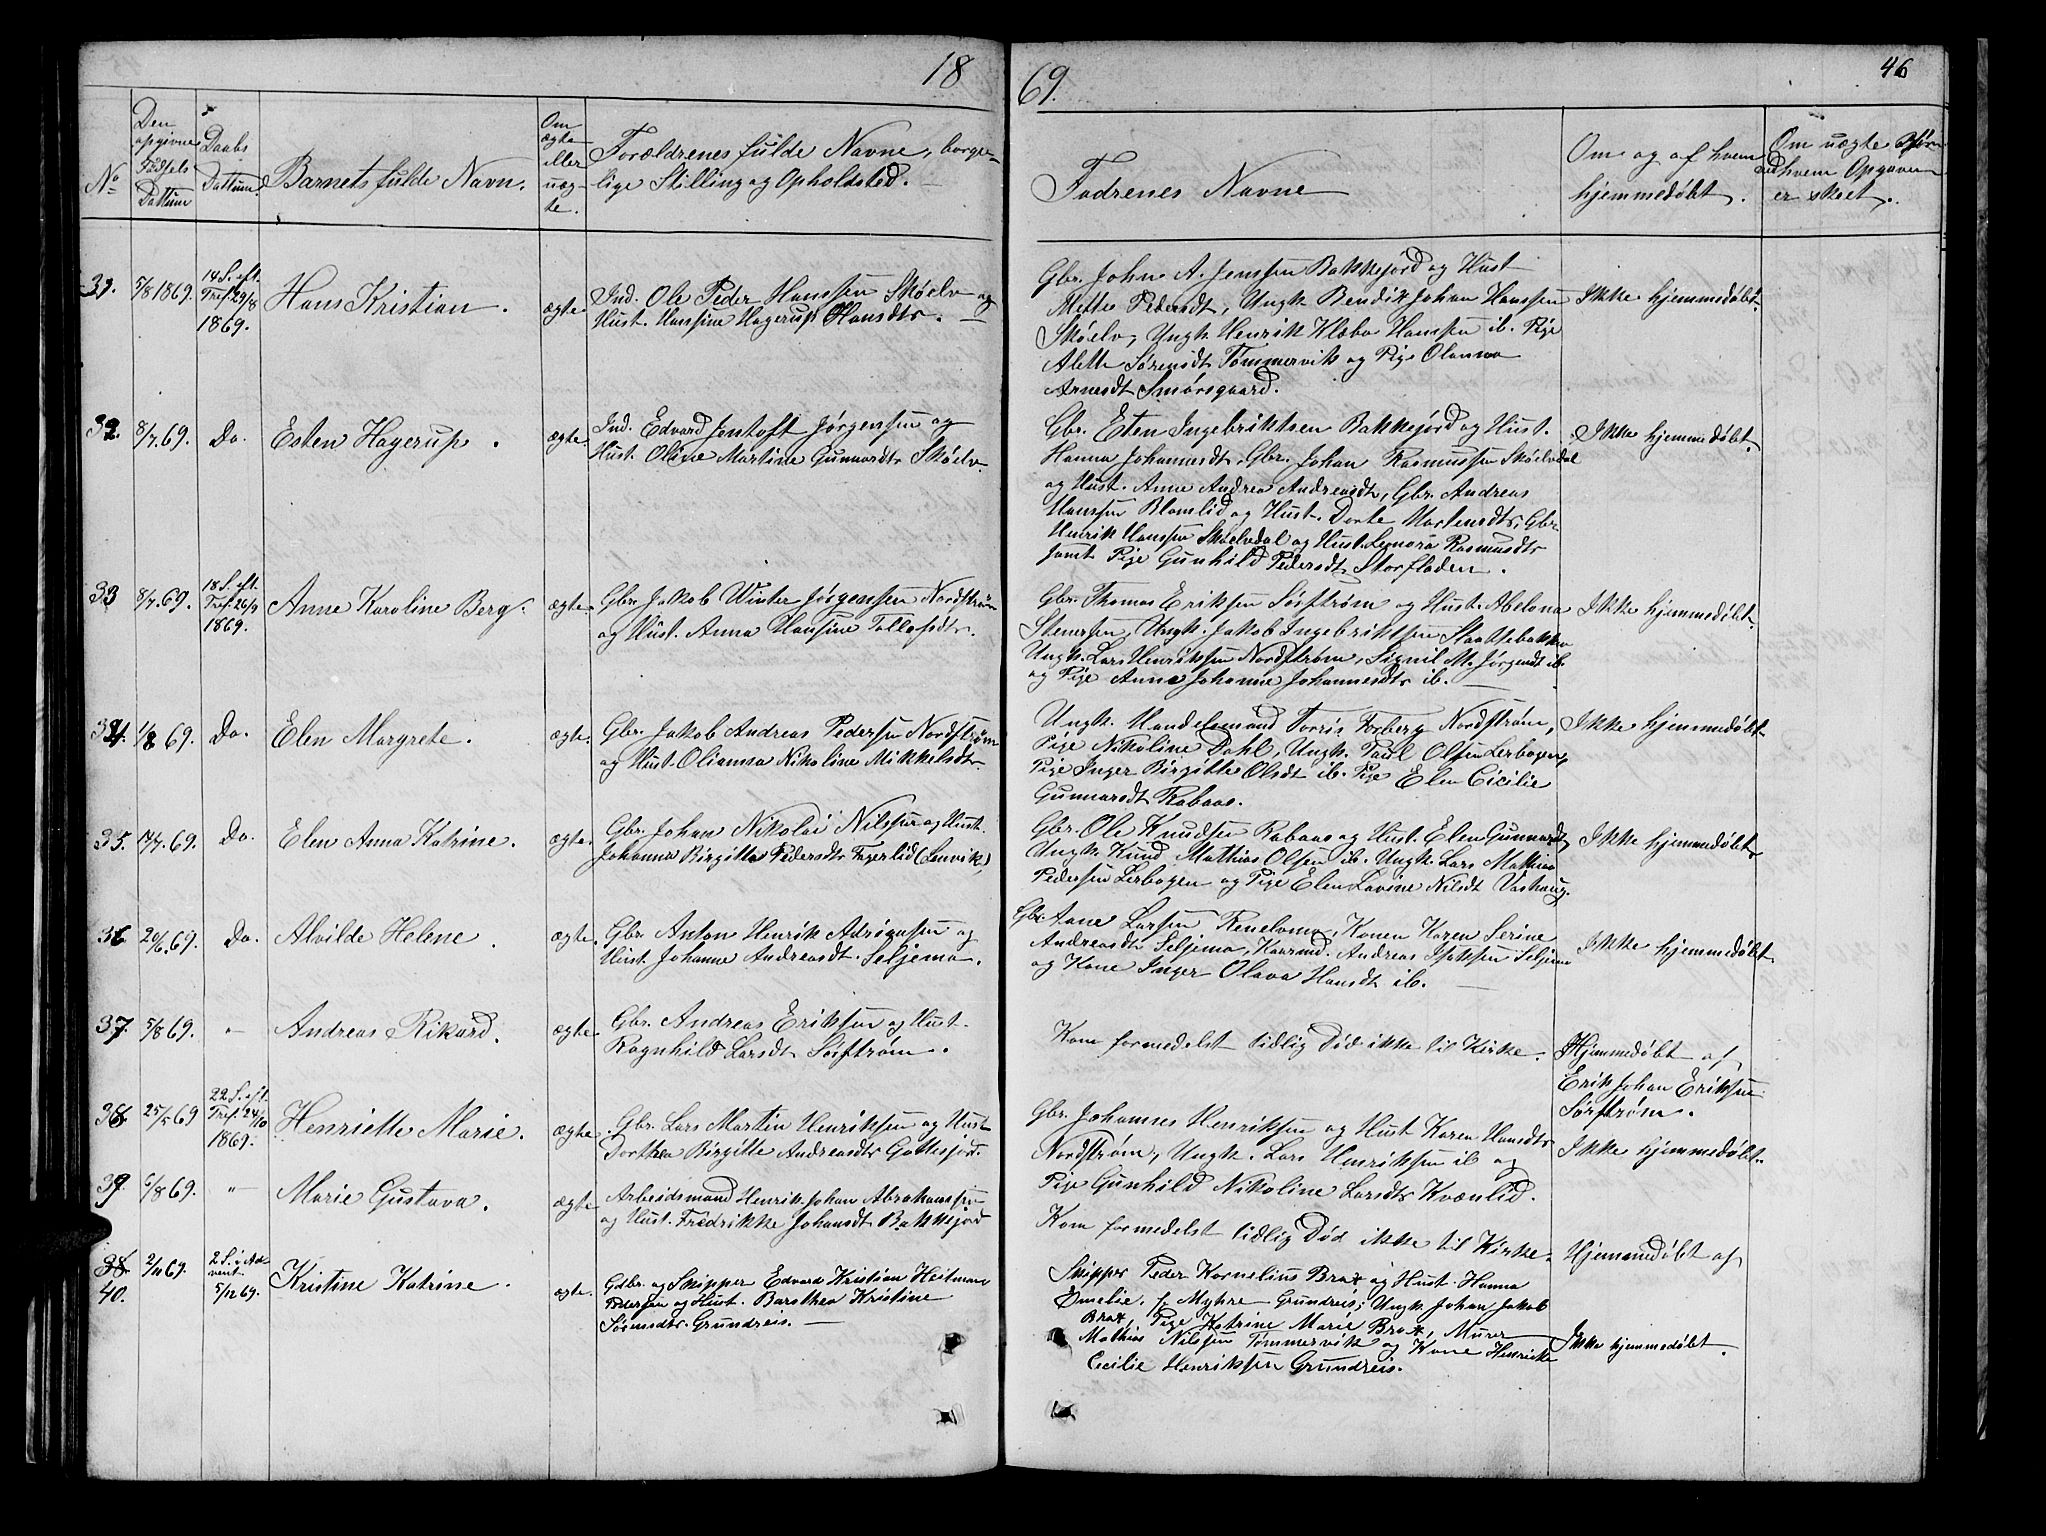 18
69.
46
No
Den
opgivne
Fødsels
Dattum
Daabs
Dattum.
Barnets fulde Navn.
Om
ægte
eller
uæg-
te.
Forældrenes fulde Navne, borge-
lige Stilling og Opholdsted.
Fadrenes Navne
Om og af hvem
hjemmedøbt.
Om uægte Børn
ved hvem Opgaven
er skeet.
31. 5/8 1869.
14 S. eft.
Tref. 29/8
1869.
Hans Kristian.
ægte.
Ind. Ole Peder Hanssen Skøelv og
Hust. Hansine Hagerup Hansdtr. —
Gbr. Johan A. Jenssen Bakkejord og Hust
Mette Pedersdt, Ungk. Bendik Johan Hanssen
Skøelv, Ungk Henrik Klæbo Hansen ib. Pige
Aleth Sørensdt Tømmervik og Pige Olanna
Arnesdt Smørsgaard.
Ikke hjemmedøbt.
32. 8/7.69. Do. Esten Hagerup. ægte.
Ind. Edvard Jentoft Jørgensen og
Hust. Oline Martine Gunnardtr Skøelv.
Gbr. Eten Ingebriktsen Bakkejord og Hust.
Hanna Johannesdt, Gbr. Johan Rasmussen Skøelvdal
og Hust. Anne Andrea Andreasdt, Gbr. Andreas
Hanssen Blomlid og Hust. Dorte Mortensdtr, Gbr.
Henrik Hanssen Skøelvdal og Hust. Lenora Rasmusdtr
samt Pige Gunhild Pedersdt Storfladen.
Ikke hjemmedøbt.
33 8/7.69.
18 S. eft.
Tref. 26/9
1869.
Anne Karoline Berg. ægte.
Gbr. Jakob Winter Jørgensen Nordstrøm
og Hust. Anna Hansine Tollefsdtr.
Gbr. Thomas Eriksen Sørstrøm og Hust. Abelona
Stensen, Ungk. Jakob Ingebriktsen Slaattebakken
Ungk. Lars Henriksen Nordstrøm, Signil M. Jørgensdt ib.
og Pige Anna Johanne Johannesdtr ib. —
Ikke hjemmedøbt.
34. 1/8 69. Do. Elen Margrete. ægte.
Gbr. Jakob Andreas Pedersen Nordstrøm
og Hust. Olianna Nikoline Mikkelsdtr.
Ungk. Handelsmand Torris Forberg Nordstrøm,
Pige Nikoline Dahl, Ungk. Paul Olsen Lerbogen,
Pige Inger Birgitte Olsdt ib. Pige Elen Cicilie
Gunnarsdt Rabaas.
Ikke hjemmedøbt.
35. 14/7.69. Do. Elen Anna Katrine. ægte.
Gbr. Johan Nikolai Nilssen og Hust.
Johanna Birgitta Pedersdtr Fagerlid (Lenvik)
Gbr. Ole Knudsen Rabaas og Hust. Elen Gunnarsdt,
Ungk. Knud Mathias Olsen ib. Ungk. Lars Mathias
Pedersen Lerbogen og Pige Elen Lovine Nilsdt Vashaug.
Ikke hjemmedøbt.
36 20/6.69. Do. Alvilde Helene. ægte.
Gbr. Anton Henrik Adriansen og
Hust. Johanne Andreasdt. Seljemo.
Gbr. Aane Larsen Reneloma, Konen Karen Serine
Andreasdt Seljemo, Kaarmd. Andreas Isaksen Seljemo
og Kone Inger Olava Hansdt ib. —
Ikke hjemmedøbt.
37. 5/8 69. "— Andreas Rikard. ægte.
Gbr. Andreas Eriksen og Hust.
Ragnhild Larsdt. Sørstrøm.
Kom formedelst tidlig Død ikke til Kirke.
Hjemmedøbt af
Erik Johan Eriksen
Sørstrøm.
38. 25/5 69
22 S. eft.
Tref. 24/10
1869.
Henriette Marie. ægte.
Gbr. Lars Martin Henriksen og Hust
Dorthea Birgitte Andreasdtr Gottesjord.
Gbr. Johannes Henriksen og Hust Karen Hansdtr
Nordstrøm, Ungk. Lars Henriksen ib og
Pige Gunhild Nikoline Larsdtr Kvænlid.
Ikke hjemmedøbt.
39. 6/8 69. "— Marie Gustava. ægte
Arbeidsmand Henrik Johan Abrahamsen
og Hust. Fredrikke Johansdt Bakkejord
Kom formedelst tidlig Død ikke til Kirke.
Hjemmedøbt af
38.
40.
2/11 69.
2 S. i Ad-
vent.
5/12 69.
Kristine Katrine. ægte.
Gdbr. og Skipper Edvard Kristian Heitman
Pedersen og Hust. Barothea Kristine
Sørensdtr. Grundreis. —
Skipper Peder Kornelius Brox og Hust. Hanna
Emelie f. Myhre Grundreis, Ungk. Johan Jakob
Brox, Pige Katrine Marie Brox, Murer
Mathias Nilssen Tømmervik og Kone Henrikke
Cecilie Henriksen Grundreis.
Ikke hjemmedøbt.